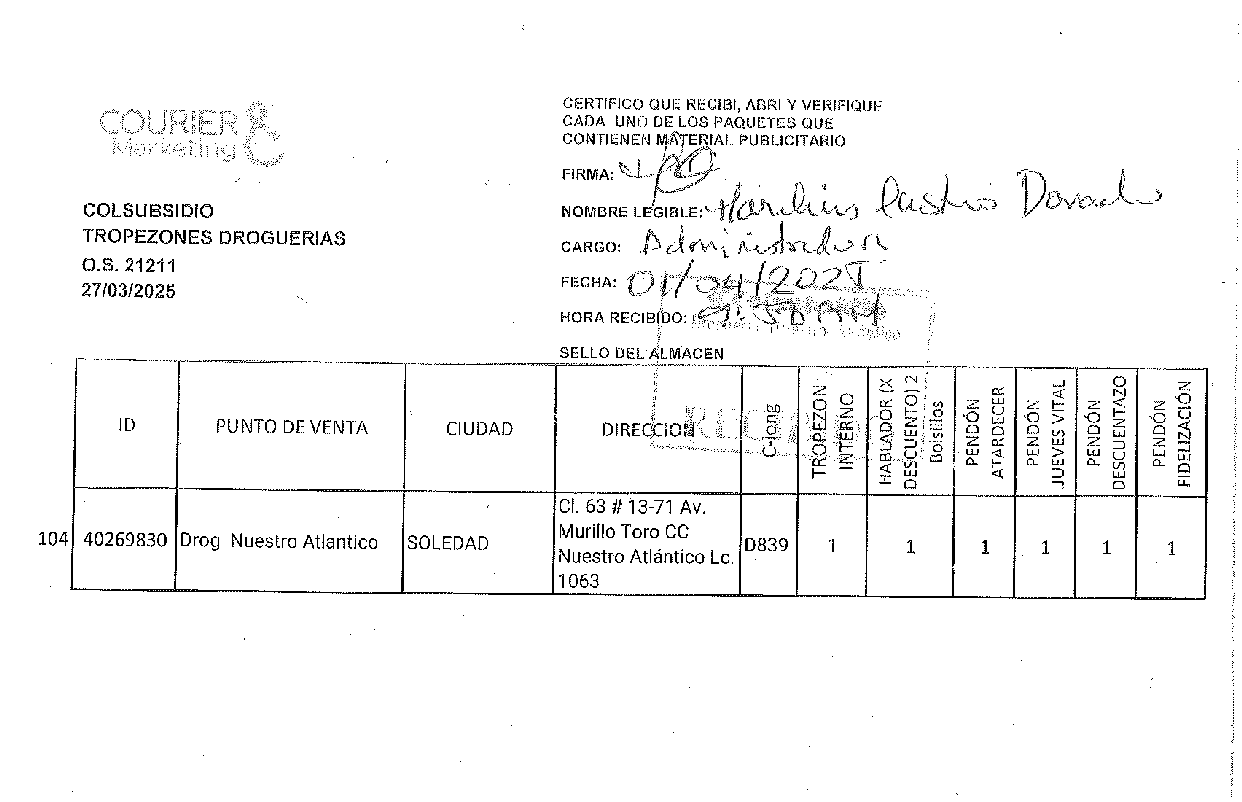 COURIER
Marketing
COLSUBSIDIO
TROPEZONES DROGUERIAS
O.S. 21211
27/03/2025
CERTIFICO QUE RECIBI, ABRI Y VERIFIQUE
CADA UNO DE LOS PAQUETES QUE
CONTIENEN MATERIAL PUBLICITARIO
FIRMA:
NOMBRE LEGIBLE: Castro
CARGO: Administradora
FECHA: 01/04/2025
HORA RECIBIDO:
SELLO DEL ALMACEN
ID
PUNTO DE VENTA
CIUDAD
DIRECCION
C-long
TROPEZON
INTERNO
HABLADOR (X
DESCUENTO) 2
Bolsillos
PENDÓN
ATARDECER
PENDÓN
JUEVES VITAL
PENDÓN
DESCUENTAZO
PENDÓN
FIDELIZACIÓN
104
40269830
Drog Nuestro Atlantico
SOLEDAD
Cl. 63 # 13-71 Av.
Murillo Toro CC
Nuestro Atlántico Lc.
1063
D839
1
1
1
1
1
1